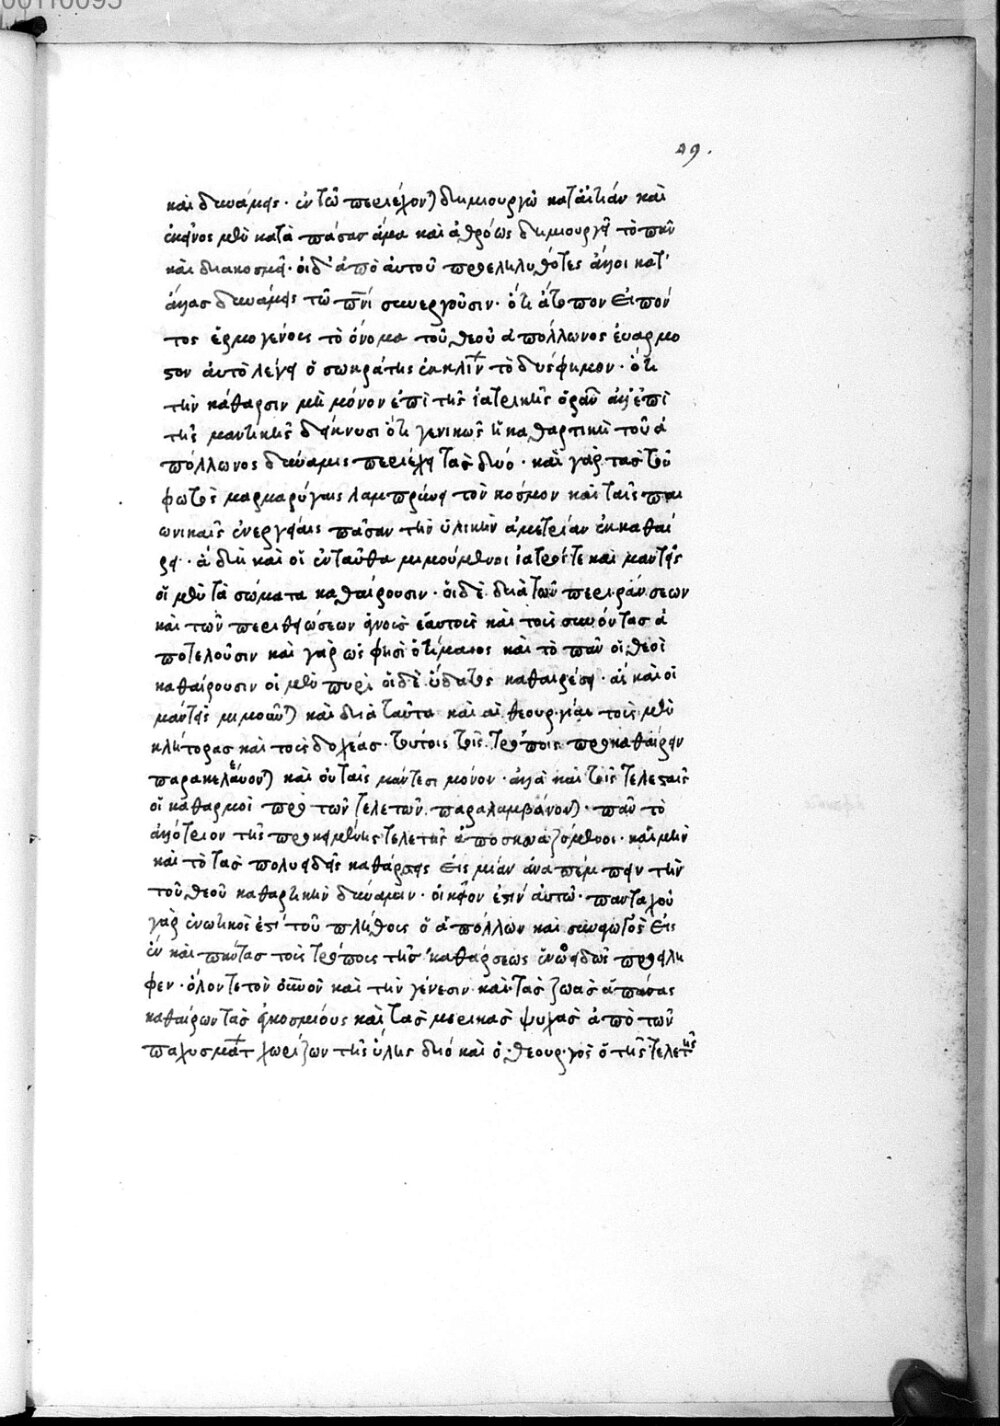 00110095
49.
καὶ δυνάμεις· ἐν τῶ περιέχονται δημιουργῶ κατ' αἰτίαν καὶ
ἐκεῖνος μὲν κατὰ πάσας ἅμα καὶ ἀθρόως δημιουργεῖ τὸ πᾶν
καὶ διακοσμεῖ· οἱ δ' ἀπὸ αὐτοῦ προεληλυθότες ἄλλοι κατ'
ἄλλας δυνάμεις τῶ πνι συνεργοῦσιν· ὅτι ἄτοπον εἰπόν
τος ἑρμογένους τὸ ὄνομα τοῦ θεοῦ ἀπόλλωνος εὐαρμο
στον αὐτὸ λέγει ὁ σωκράτης ἐκκλίν τὸ δύσφημον· ὅτι
τὴν κάθαρσιν μὴ μόνον ἐπὶ τῆς ἰατρικῆς ὁρᾶν ἀλλ' ἐπὶ
τῆς μαντικῆς δείκνυσι ὅτι γενικῶς ἡ καθαρτικὴ τοῦ ἀ
πόλλωνος δύναμις περιέχει τὰς δύο· καὶ γὰρ τὰς τοῦ
φωτὸς μαρμαρύγαις λαμπρύνει τὸν κόσμον καὶ ταῖς παι
ωνικαῖς ἐνεργείαις πᾶσαν τὴν ὑλικὴν ἀμετρίαν ἐκκαθαί
ρει· ἃ δὴ καὶ οἱ ἐνταῦθα μιμούμενοι ἰατροί τε καὶ μάντεις
οἱ μὲν τὰ σώματα καθαίρουσιν· οἱ δὲ διὰ τῶν περιράνσεων
καὶ τῶν περιθειώσεων ἁγνοὺς ἑαυτοὺς καὶ τοὺς συνόντας ἀ
ποτελοῦσιν καὶ γὰρ ὡς φησὶ ὁ τίμαιος καὶ τὸ πᾶν οἱ θεοὶ
καθαίρουσιν οἱ μὲν πυρὶ οἱ δὲ ὕδατος καθαιρέσει· ἃς καὶ οἱ
μάντεις μιμοῦνται καὶ διὰ ταῦτα καὶ αἱ θεουργίαι τοὺς μὲν
κλήτορας καὶ τοὺς δοχέας· τούτοις τοῖς τρόποις προκαθαίρειν
παρακελεύονται καὶ οὐ ταῖς μάντεσι μόνον· ἀλλὰ καὶ τοῖς τελεσταῖς
οἱ καθαρμοὶ πρὸ τῶν τελετῶν παραλαμβάνονται· πᾶν τὸ
ἀλλότριον τῆς προκειμένης τελετῆς ἀποσκευαζόμενοι· καὶ μὴν
καὶ τὸ τὰς πολυειδεῖς καθάρσεις εἰς μίαν ἀναπέμπειν τὴν
τοῦ θεοῦ καθαρτικὴν δύναμιν· οἰκεῖον ἐστίν αὐτῶ· πανταχοῦ
γὰρ ἑνωτικός ἐστί τοῦ πλήθους ὁ ἀπόλλων καὶ συναγωγὸς εἰς
ἓν καὶ πάντας τοὺς τρόπους τῆς καθάρσεως ἑνοειδῶς προείλη
φεν· ὅλον τε τὸν οὐνον καὶ τὴν γένεσιν καὶ τὰς ζωὰς ἁπάσας
καθαίρων τὰς ἐγκοσμίους καὶ τὰς μερικὰς ψυχὰς ἀπὸ τῶν
παχυσμάτ χωρίζων τῆς ὕλης διό καὶ ὁ θεουργὸς ὁ τῆς τελετῆς